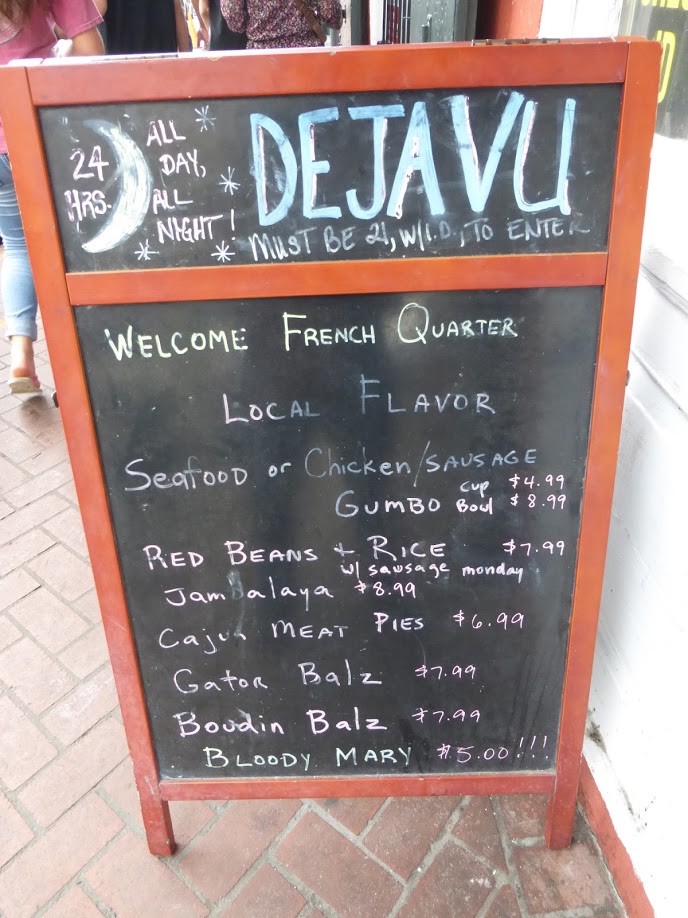 24 HRS.
ALL DAY, ALL NIGHT!
DEJAVU
MUST BE 21, W/I.D., TO ENTER
WELCOME FRENCH QUARTER
LOCAL FLAVOR
Seafood or Chicken/SAUSAGE
GUMBO cup $4.99
Bowl $8.99
RED BEANS + RICE $7.99
w/ sausage monday
Jambalaya $8.99
Cajun MEAT PIES $6.99
Gator Balz $7.99
Boudin Balz $7.99
BLOODY MARY $5.00!!!